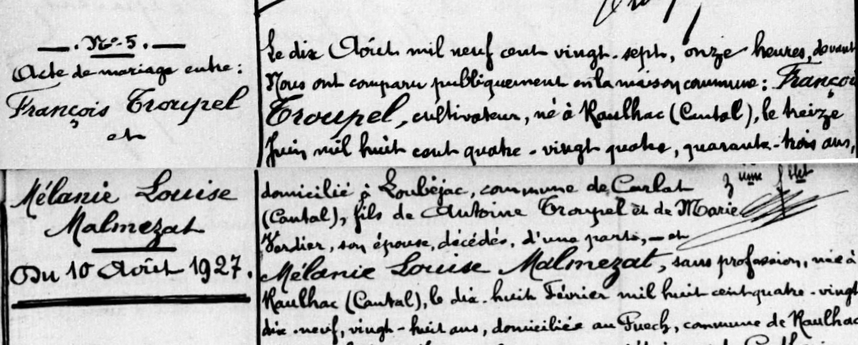 N° 5.
Acte de mariage entre:
François Troupel
et
Mélanie Louise
Malmezat
Du 10 Août 1927.
Le dix Août mil neuf cent vingt-sept, onze heures, devant
Nous ont comparu publiquement en la maison commune: François
Troupel, cultivateur, né à Raulhac (Cantal), le treize
Juin mil huit cent quatre-vingt quatre, quarante-trois ans,
domicilié à Loubéjac, commune de Carlat
(Cantal), fils de Antoine Troupel et de Marie
Verdier, son épouse, décédés, d'une part, - et
Mélanie Louise Malmezat, sans profession, née à
Raulhac (Cantal), le dix-huit Février mil huit cent quatre-vingt
dix-neuf, vingt-huit ans, domiciliée au Puech, commune de Raulhac